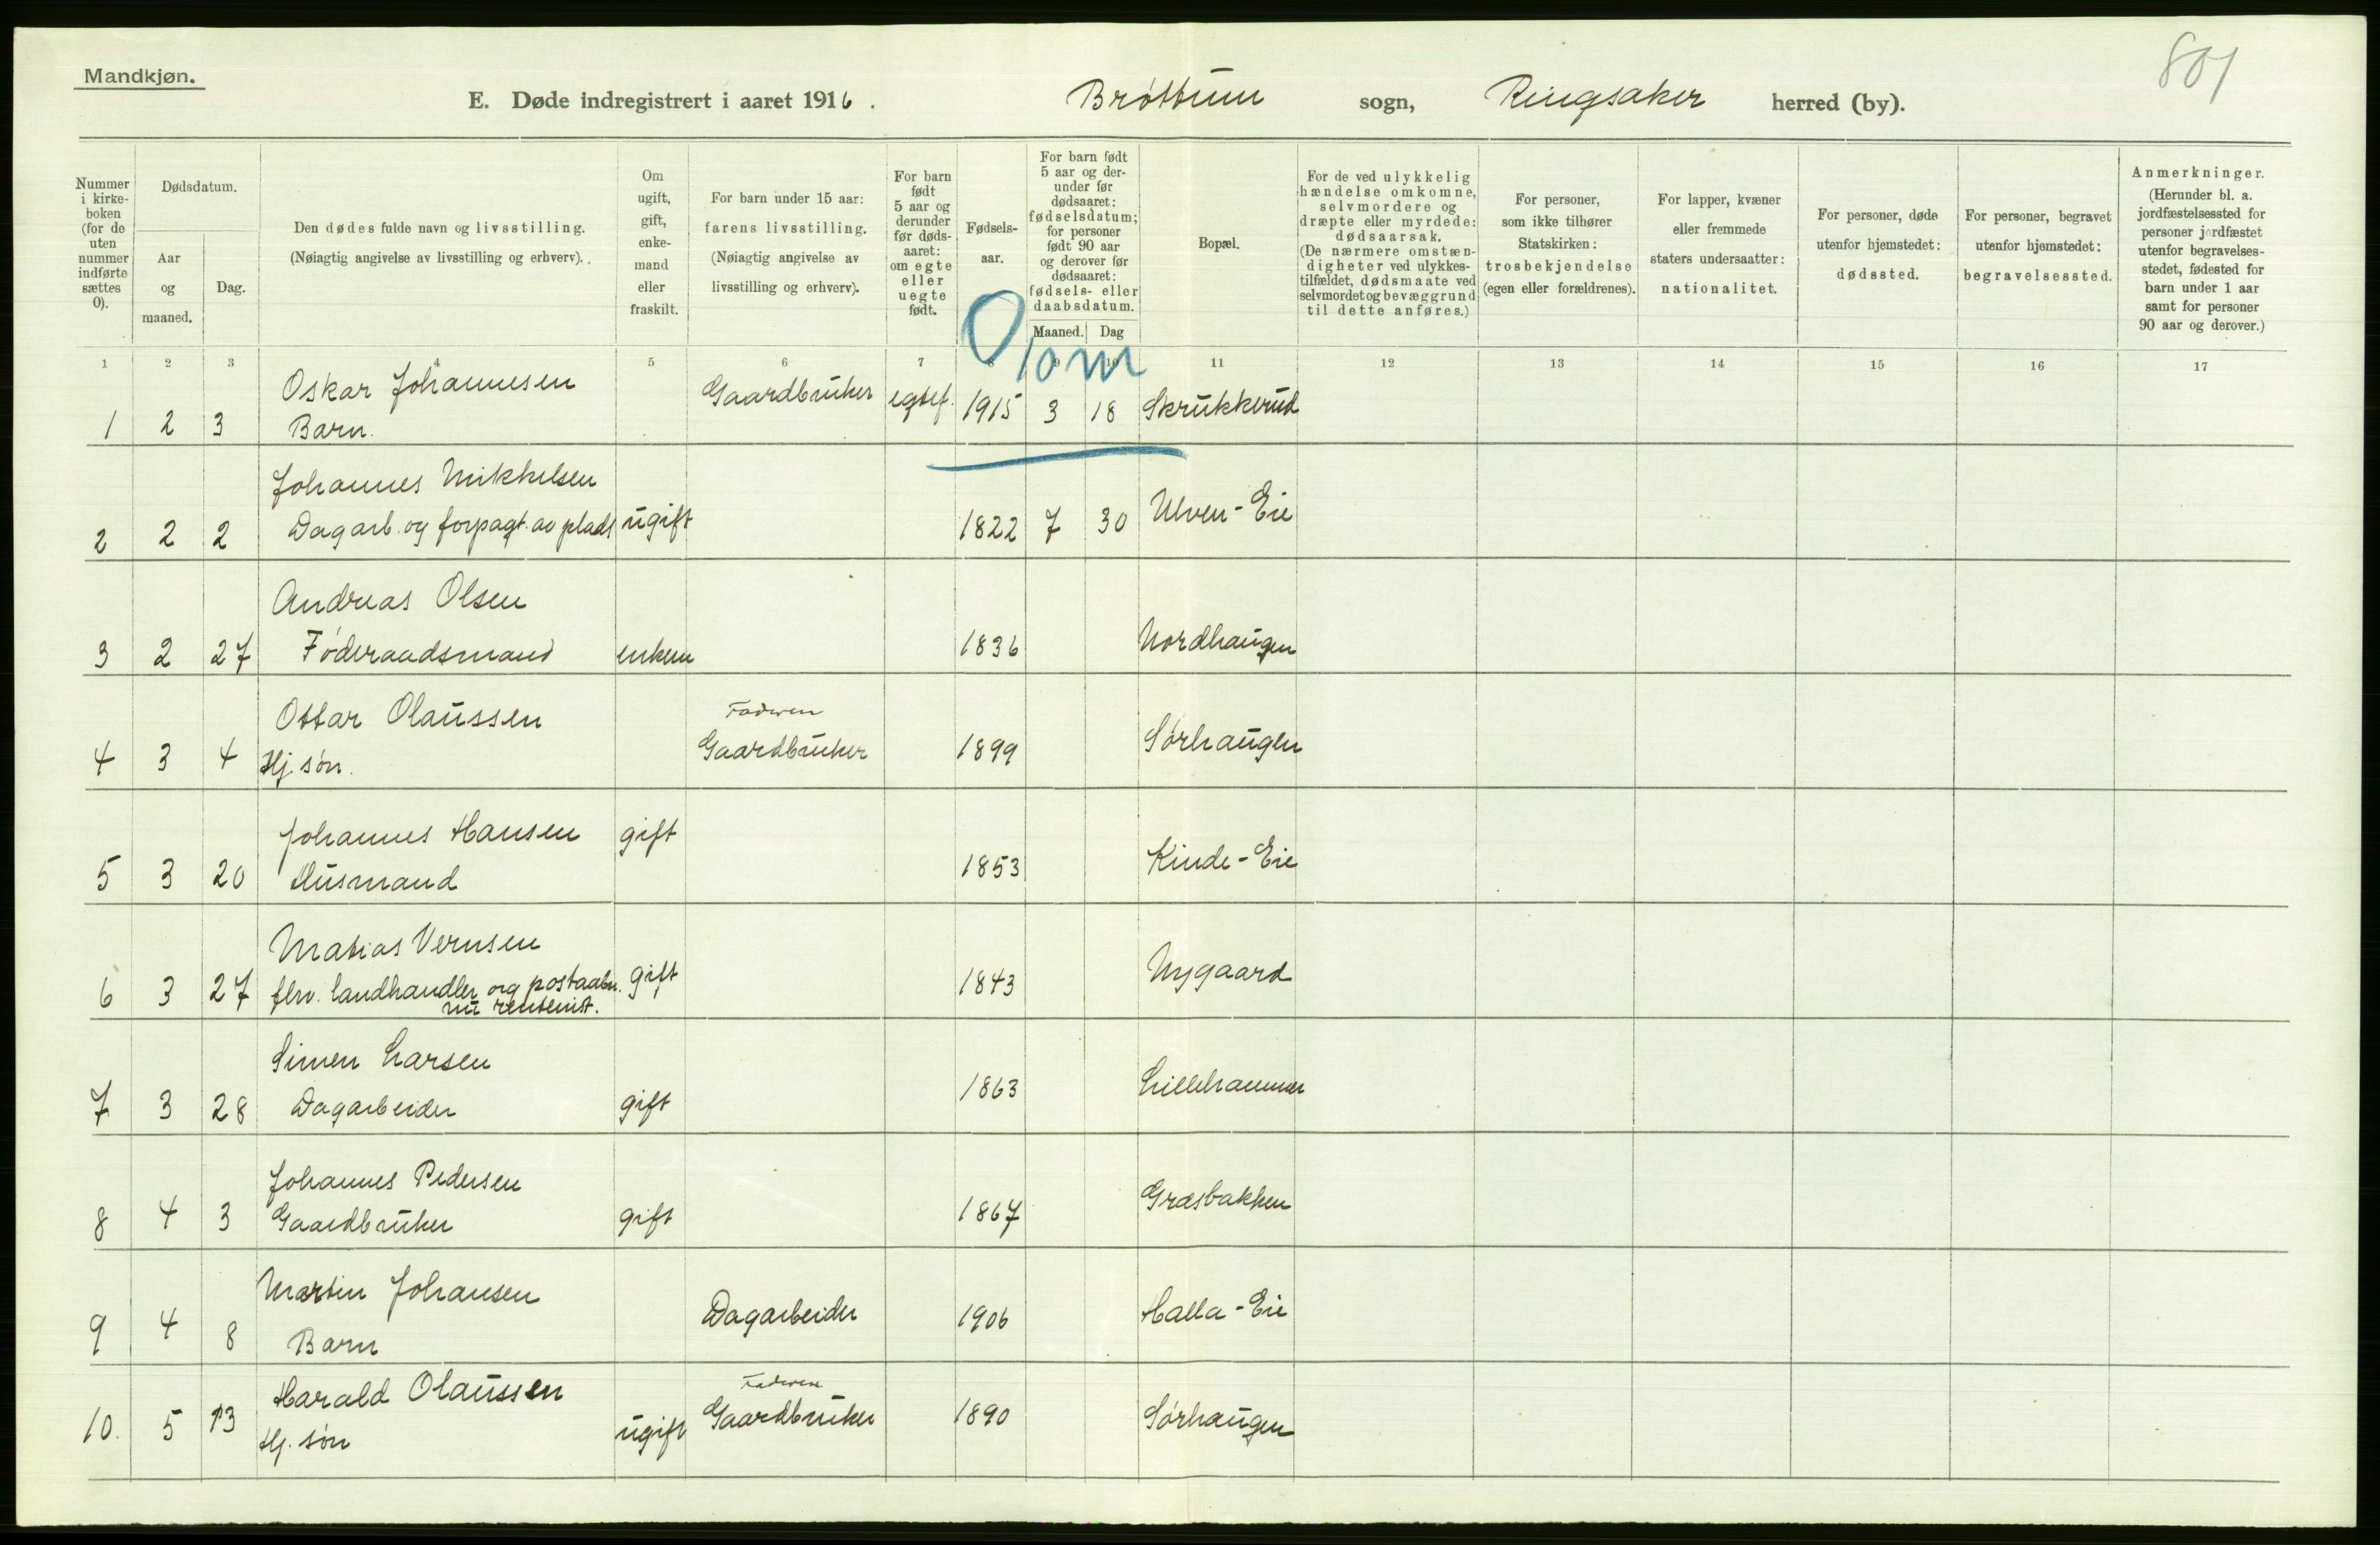 801
Mandkjøn.
E. Døde indregistrert i aaret 1916. Brøttum sogn, Ringsaker herred (by).
Nummer
i kirke-
boken
(for de
uten
nummer
indførte
sættes
0).
Dødsdatum.
Aar
og
maaned.
Dag.
Den dødes fulde navn og livsstilling.
(Nøiagtig angivelse av livsstilling og erhverv).
Om
ugift,
gift,
enke-
mand
eller
fraskilt.
For barn under 15 aar:
farens livsstilling.
(Nøiagtig angivelse av
livsstilling og erhverv).
For barn
født
5 aar og
derunder
før døds-
aaret:
om egte
eller
uegte
født.
Fødsels-
aar.
For barn født
5 aar og der-
under før
dødsaaret:
fødselsdatum;
for personer
født 90 aar
og derover før
dødsaaret:
fødsels- eller
daabsdatum.
Maaned. Dag
Bopæl.
For de ved ulykkelig
hændelse omkomne,
selvmordere og
dræpte eller myrdede:
dødsaarsak.
(De nærmere omstæn-
digheter ved ulykkes-
tilfældet, dødsmaate ved
selvmordet og bevæggrund
til dette anføres.)
For personer,
som ikke tilhører
Statskirken:
trosbekjendelse
(egen eller forældrenes).
For lapper, kvæner
eller fremmede
staters undersaatter:
nationalitet.
For personer, døde
utenfor hjemstedet:
dødssted.
For personer, begravet
utenfor hjemstedet:
begravelsessted.
Anmerkninger.
(Herunder bl. a.
jordfæstelsessted for
personer jordfæstet
utenfor begravelses-
stedet, fødested for
barn under 1 aar
samt for personer
90 aar og derover.)
0 10 m
1 2 3 4 5 6 7 8 9 10 11 12 13 14 15 16 17
Oskar Johannesen
1 2 3 Barn. Gaardbruker egtef. 1915 3 18 Skrukkerud
Johannes Mikkelsen
2 2 2 Dagarb. og forpagt. av plads ugift 1822 7 30 Ulven-Eie
Andreas Olsen
3 2 27 Føderaadsmand enkem 1836 Nordhaugen
Ottar Olaussen Faderen
4 3 4 Hj. søn. Gaardbruker 1899 Sørhaugen
Johannes Hansen gift
5 3 20 Husmand 1853 Kinde-Eie
Matias Vernsen
6 3 27 fhv. landhandler og postaabn. gift 1843 Nygaard
nu rentenist.
Simen Larsen
7 3 28 Dagarbeider gift 1863 Lillehammer
Johannes Pedersen
8 4 3 Gaardbruker gift 1867 Græsbakken
Martin Johansen
9 4 8 Barn Dagarbeider 1906 Halla-Eie
Harald Olaussen Faderen
10. 5 13 Hj. søn ugift Gaardbruker 1890 Sørhaugen